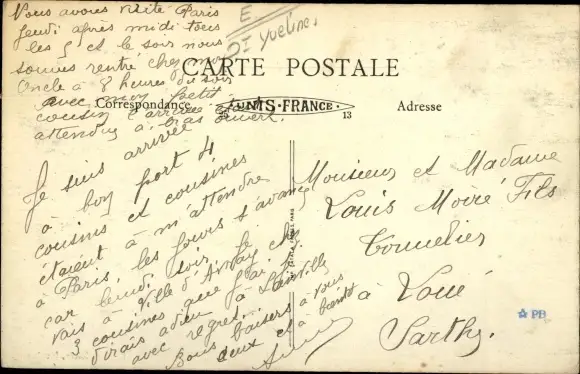 Nous avons visité Paris
Jeudi après midi tous
les 5 et le soir nous
sommes rentré chez mon
Oncle à 8 heures du soir
avec mon petit
cousin l'arrivée était
attendu à bras ouvert.
E
DI Yveline.
CARTE POSTALE
Correspondance
UNIS-FRANCE
13
Adresse
Je suis arrivée
à bon port 4
cousins et cousines
étaient à m'attendre
à Paris, les jours s'avance
car lundi soir, je
vais à Ville d'Avray
3 cousines que j'ai
dirais adieu à Lainville
avec regret.
Bons baisers à vous
deux et à bientôt
Monsieur et Madame
Louis Moiré Fils
Tonnelier
à Loué
Sarthe.
PB